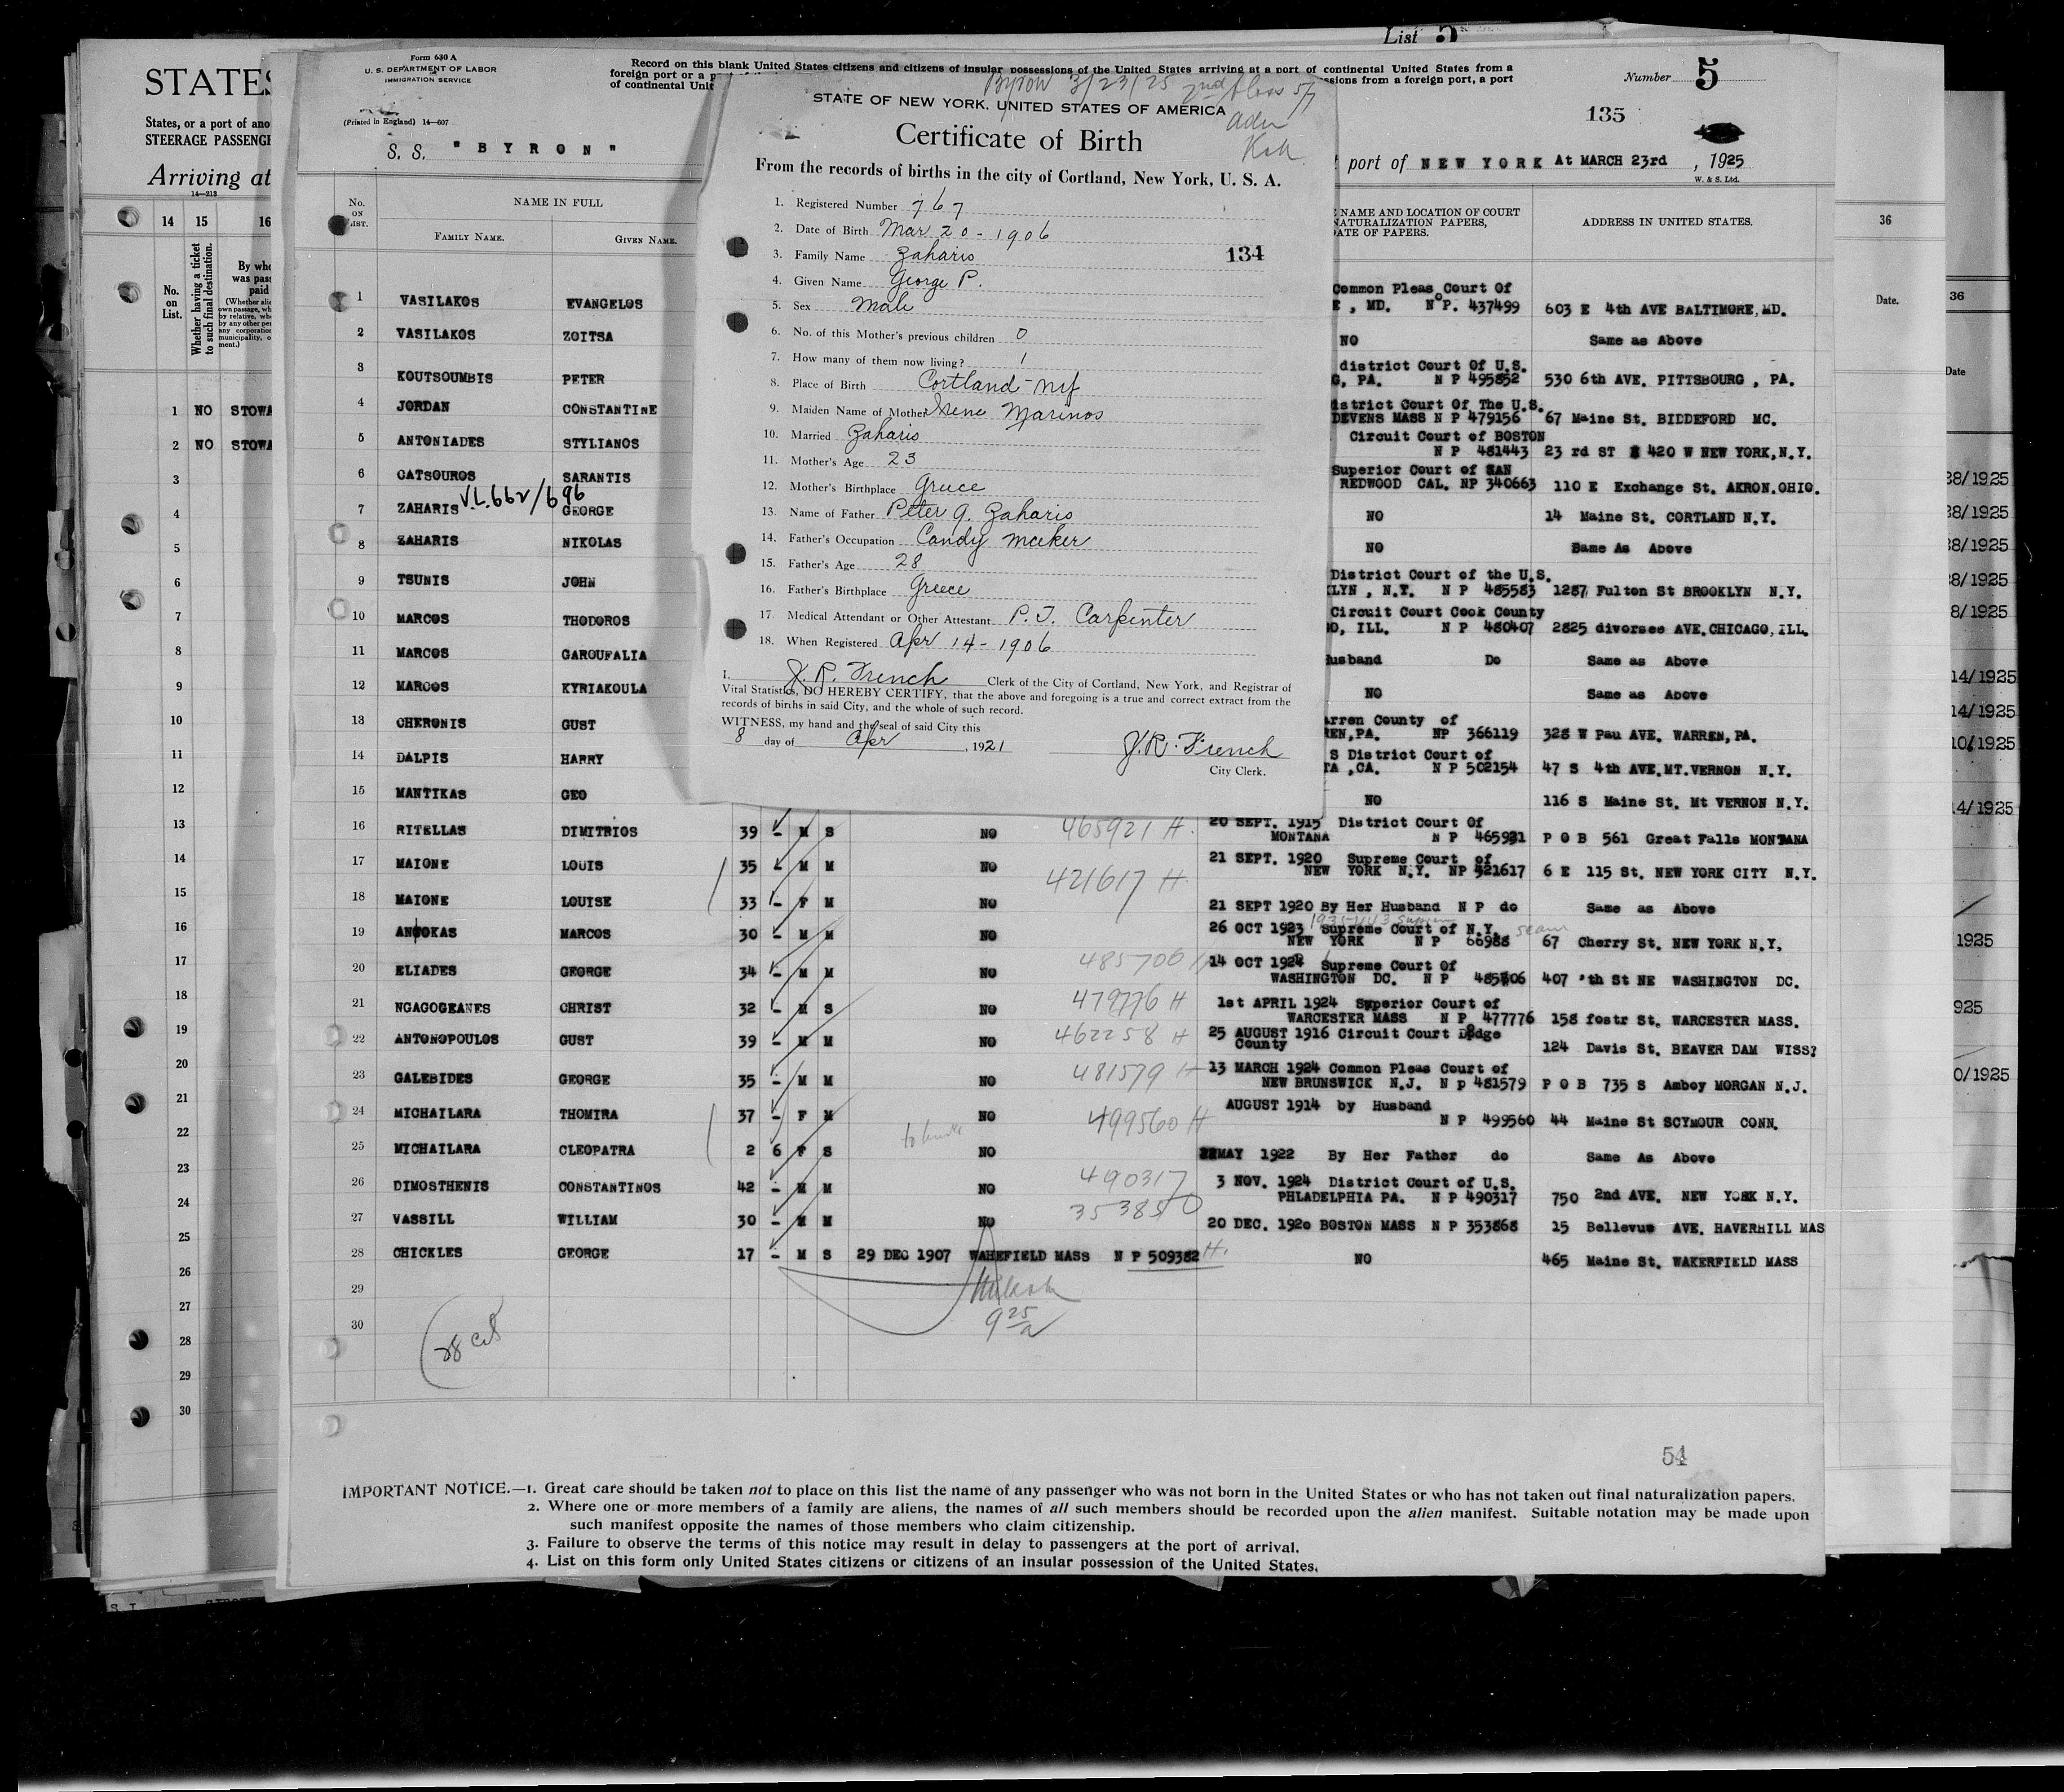 List 5
STATES
States, or a port of ano
STEERAGE PASSENGE
Arriving at
14—213
14 15 16
No. on List.
Whether having a ticket to such final destination.
By who
was pass
paid
1 NO STOWA
2 NO STOWA
3
4
5
6
7
8
9
10
11
12
13
14
15
16
17
18
19
20
21
22
23
24
25
26
27
28
29
30
Form 630 A
U. S. DEPARTMENT OF LABOR
IMMIGRATION SERVICE
(Printed in England) 14—607
Record on this blank United States citizens and citizens of insular possessions of the United States arriving at a port of continental United States from a
foreign port or a p
ssions from a foreign port, a port
of continental Unit
Number 5
135
S. S. "BYRON"
port of NEW YORK At MARCH 23rd , 1925
W. & S. Ltd.
No. ON LIST.
NAME IN FULL
FAMILY NAME.
GIVEN NAME.
NAME AND LOCATION OF COURT
NATURALIZATION PAPERS,
DATE OF PAPERS.
ADDRESS IN UNITED STATES.
Byron 3/23/25 2nd Class 5/7
STATE OF NEW YORK, UNITED STATES OF AMERICA
Certificate of Birth
From the records of births in the city of Cortland, New York, U. S. A.
1. Registered Number 767
2. Date of Birth Mar 20 - 1906
134
3. Family Name Zaharis
4. Given Name George P.
5. Sex Male
6. No. of this Mother's previous children 0
7. How many of them now living? 1
8. Place of Birth Cortland - NY
9. Maiden Name of Mother Irene Marinos
10. Married Zaharis
11. Mother's Age 23
12. Mother's Birthplace Greece
13. Name of Father Peter G. Zaharis
14. Father's Occupation Candy Maker
15. Father's Age 28
16. Father's Birthplace Greece
17. Medical Attendant or Other Attestant P. T. Carpenter
18. When Registered Apr 14 - 1906
I, J. R. French Clerk of the City of Cortland, New York, and Registrar of
Vital Statistics, DO HEREBY CERTIFY, that the above and foregoing is a true and correct extract from the
records of births in said City, and the whole of such record.
WITNESS, my hand and the seal of said City this
8 day of Apr , 1921
J. R. French
City Clerk.
1 VASILAKOS EVANGELOS
Common Pleas Court Of
E , MD. N P. 437499 603 E 4th AVE BALTIMORE, MD.
2 VASILAKOS ZOITSA NO Same as Above
3 KOUTSOUMBIS PETER
district Court Of U.S.
G, PA. N P 495852 530 6th AVE. PITTSBOURG , PA.
4 JORDAN CONSTANTINE
istrict Court Of The U.S.
DEVENS MASS N P 479156 67 Maine St. BIDDEFORD MC.
5 ANTONIADES STYLIANOS
Circuit Court of BOSTON
N P 481443 23 rd ST 420 W NEW YORK, N.Y.
6 CATSOUROS SARANTIS
Superior Court of SAN
REDWOOD CAL. NP 340663 110 E Exchange St. AKRON.OHIO.
V.L. 662/696
7 ZAHARIS GEORGE NO 14 Maine St. CORTLAND N.Y.
8 ZAHARIS NIKOLAS NO Same As Above
9 TSUNIS JOHN
District Court of the U.S.
LYN , N.Y. N P 485583 1287 Fulton St BROOKLYN N.Y.
10 MARCOS THODOROS
Circuit Court Cook County
O, ILL. N P 480407 2825 divorsee AVE. CHICAGO, ILL.
11 MARCOS GAROUFALIA usband Do Same as Above
12 MARCOS KYRIAKOULA NO Same as Above
13 CHERONIS GUST
arren County of
EN,PA. NP 366119 328 W Pau AVE. WARREN, PA.
14 DALPIS HARRY
S District Court of
TA ,CA. N P 502154 47 S 4th AVE.MT.VERNON N.Y.
15 MANTIKAS GEO NO 116 S Maine St. Mt VERNON N.Y.
16 RITELLAS DIMITRIOS 39 - M S NO 465921 H. 20 SEPT. 1915 District Court Of
MONTANA N P 465931 P O B 561 Great Falls MONTANA
17 MAIONE LOUIS 35 - M M NO 421617 H. 21 SEPT. 1920 Supreme Court of
NEW YORK N.Y. NP 421617 6 E 115 St. NEW YORK CITY N.Y.
18 MAIONE LOUISE 33 - F M NO 21 SEPT 1920 By Her Husband N P do Same as Above
19 ANOKAS MARCOS 30 - M M NO 26 OCT 1923 Supreme Court of N.Y.
NEW YORK N P 66988 67 Cherry St. NEW YORK N.Y.
20 ELIADES GEORGE 34 - M M NO 485706 14 OCT 1924 Supreme Court Of
WASHINGTON DC. N P 485706 407 'th St NE WASHINGTON DC.
21 NGAGOGEANES CHRIST 32 - M S NO 479776 H 1st APRIL 1924 Superior Court of
WARCESTER MASS N P 477776 158 fostr St. WARCESTER MASS.
22 ANTONOPOULOS GUST 39 - M M NO 462258 H 25 AUGUST 1916 Circuit Court Dodge
County 124 Davis St. BEAVER DAM WISS?
23 GALEBIDES GEORGE 35 - M M NO 481579 H 13 MARCH 1924 Common Pleas Court of
NEW BRUNSWICK N.J. N p 481579 P O B 735 S Amboy MORGAN N.J.
24 MICHAILARA THOMIRA 37 - F M NO 499560 H AUGUST 1914 by Husband
N P 499560 44 Maine St SCYMOUR CONN.
25 MICHAILARA CLEOPATRA 2 6 F S NO MAY 1922 By Her Father do Same As Above
26 DIMOSTHENIS CONSTANTINOS 42 - M M NO 490317 3 NOV. 1924 District Court of U.S.
PHLADELPHIA PA. N P 490317 750 2nd AVE. NEW YORK N.Y.
27 VASSILL WILLIAM 30 - M M NO 353850 20 DEC. 1920 BOSTON MASS N P 353868 15 Bellevue AVE. HAVERHILL MAS
28 CHICKLES GEORGE 17 - M S 29 DEC 1907 WAHEFIELD MASS N P 509382 H. NO 465 Maine St. WAKERFIELD MASS
29
30
925
54
IMPORTANT NOTICE.—1. Great care should be taken not to place on this list the name of any passenger who was not born in the United States or who has not taken out final naturalization papers.
2. Where one or more members of a family are aliens, the names of all such members should be recorded upon the alien manifest. Suitable notation may be made upon
such manifest opposite the names of those members who claim citizenship.
3. Failure to observe the terms of this notice may result in delay to passengers at the port of arrival.
4. List on this form only United States citizens or citizens of an insular possession of the United States.
36
Date.
36
Date
8/1925
8/1925
8/1925
8/1925
8/1925
14/1925
14/1925
10/1925
14/1925
1925
925
0/1925